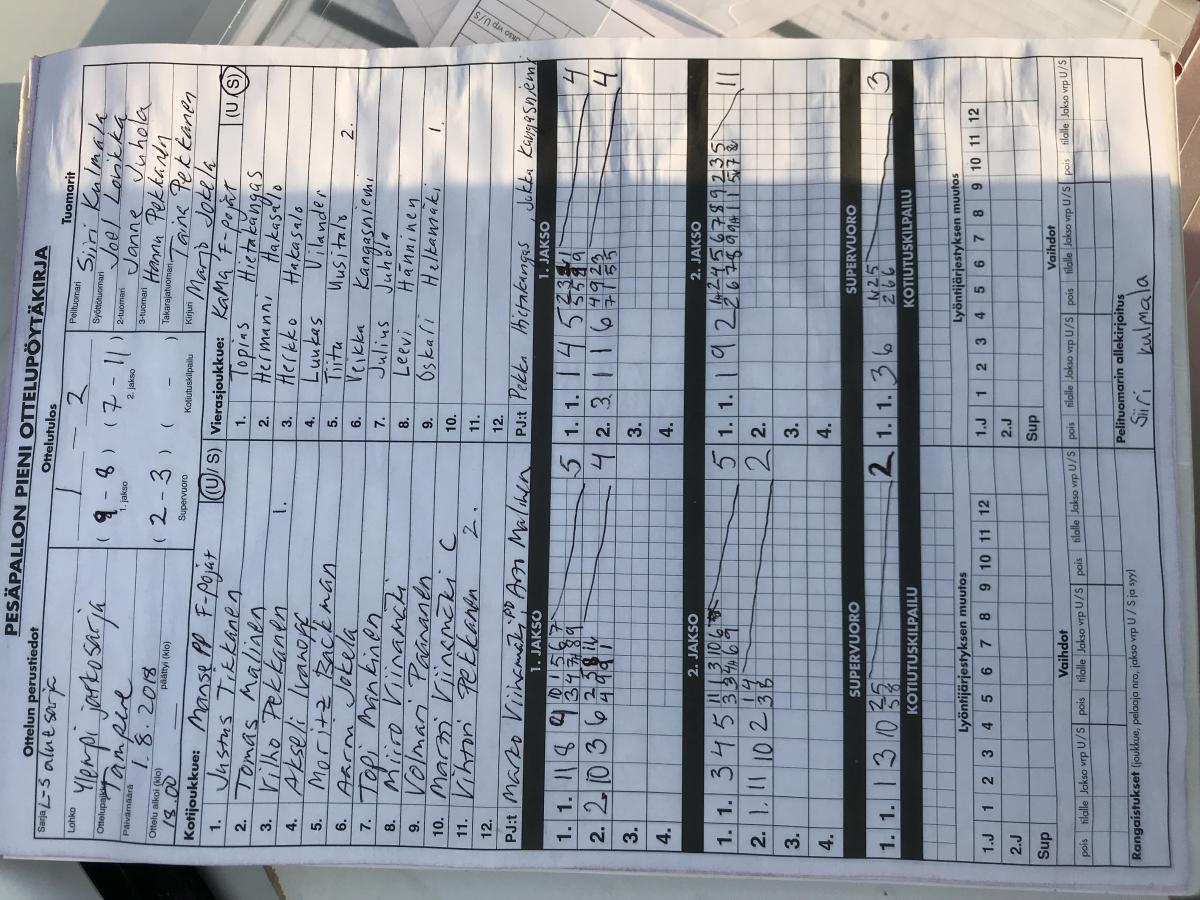 PESÄPALLON PIENI OTTELUPÖYTÄKIRJA
Ottelun perustiedot
Sarja L-S aluesarja
Lohko Ylempi jatkosarja
Ottelupaikka Tampere
Päivämäärä 1.8.2018
Ottelu alkoi (klo) 18.00 päättyi (klo)
Ottelutulos
1 – 2
( 9 - 8 ) ( 7 - 11 )
1. jakso 2. jakso
( 2 - 3 ) ( - )
Supervuoro Kotiutuskilpailu
Tuomarit
Pelituomari Siiri Kulmala
Syöttötuomari Joel Lorikka
2-tuomari Janne Juhola
3-tuomari Hannu Pekkanen
Takarajatuomari Taina Pekkanen
Kirjuri Marjo Jokela
Kotijoukkue: Manse PP F-pojat (U / S)
1. Justus Tikkanen
2. Tomas Malinen
3. Vilho Pekkanen 1.
4. Akseli Ivanoff
5. Moritz Backman
6. Aarni Jokela
7. Topi Mankinen
8. Miiro Viinamäki
9. Volmari Paananen
10. Martti Viinamäki C
11. Vihtori Pekkanen 2.
12.
PJ:t Marko Viinamäki, Arto Malinen
Vierasjoukkue: KaMa F-pojat (U / S)
1. Topias Hietakangas
2. Hermanni Hakasalo
3. Heikko Hakasalo
4. Luukas Vilander
5. Tiitu Uusitalo 2.
6. Veikka Kangasniemi
7. Julius Juhola
8. Leevi Hänninen
9. Oskari Helkamäki 1.
10.
11.
12.
PJ:t Pekka Hietakangas, Jukka Kangasniemi
1. JAKSO
1. 1. 11 8 9 5
2. 2. 10 3 6 4
3.
4.
1. JAKSO
1. 1. 1 4 5 4
2. 3 1 1 6 4
3.
4.
2. JAKSO
1. 1. 3 4 5 5
2. 1. 11 10 2 2
3.
4.
2. JAKSO
1. 1. 1 9 2 11
2.
3.
4.
SUPERVUORO
1. 1. 1 3 10 2
SUPERVUORO
1. 1. 3 6 3
KOTIUTUSKILPAILU
KOTIUTUSKILPAILU
Lyöntijärjestyksen muutos
1.J 1 2 3 4 5 6 7 8 9 10 11 12
2.J
Sup
Lyöntijärjestyksen muutos
1.J 1 2 3 4 5 6 7 8 9 10 11 12
2.J
Sup
Vaihdot
pois tilalle Jakso vrp U/S pois tilalle Jakso vrp U/S pois tilalle Jakso vrp U/S
Vaihdot
pois tilalle Jakso vrp U/S pois tilalle Jakso vrp U/S pois tilalle Jakso vrp U/S
Rangaistukset (joukkue, pelaaja nro, jakso vrp U / S ja syy)
Pelituomarin allekirjoitus
Siiri Kulmala